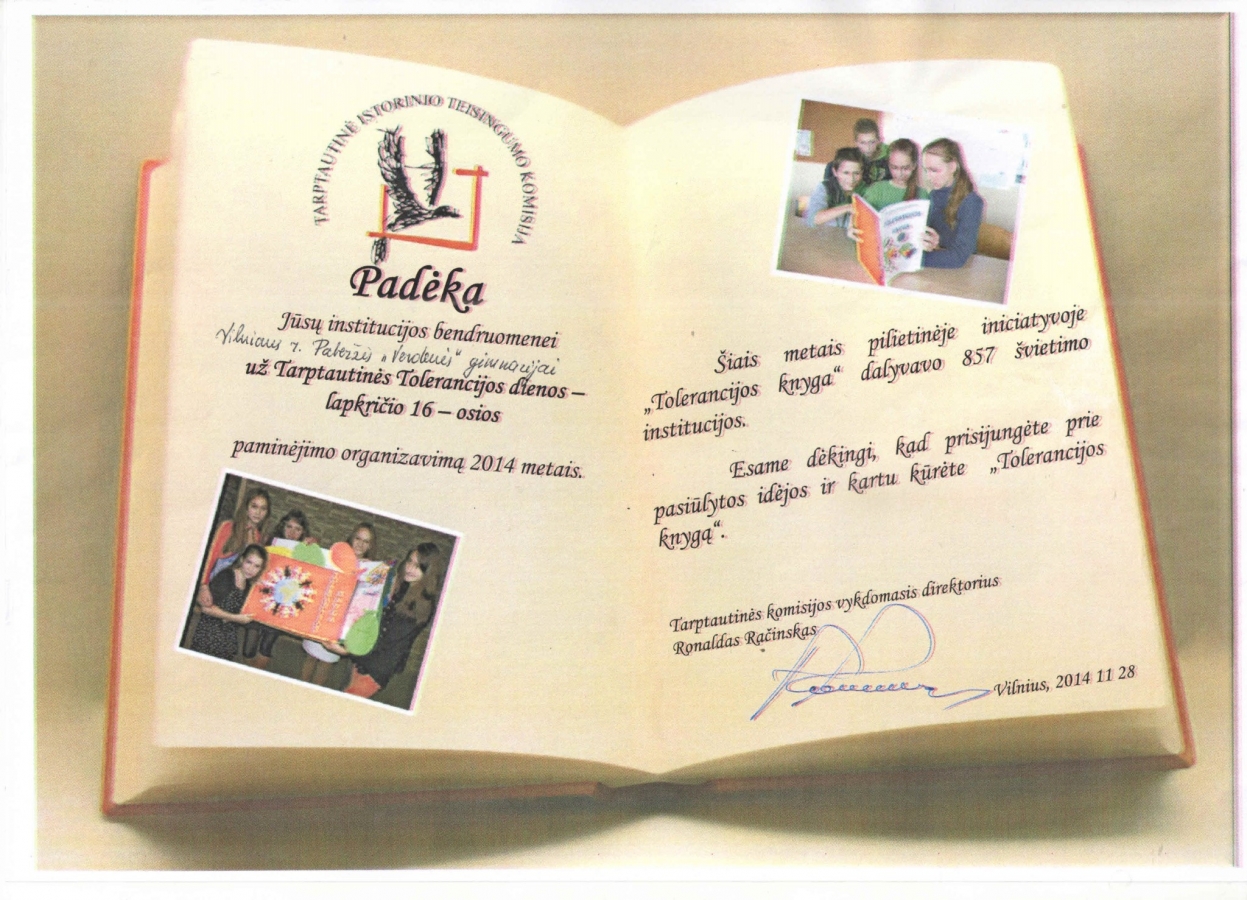 TARPTAUTINĖ ISTORINIO TEISINGUMO KOMISIJA
Padėka
Jūsų institucijos bendruomenei
Vilniaus r. Paberžės „Verdenės“ gimnazijai
už Tarptautinės Tolerancijos dienos –
lapkričio 16 – osios
paminėjimo organizavimą 2014 metais.
Šiais metais pilietinėje iniciatyvoje
„Tolerancijos knyga“ dalyvavo 857 švietimo
institucijos.
Esame dėkingi, kad prisijungėte prie
pasiūlytos idėjos ir kartu kūrėte „Tolerancijos
knygą“.
Tarptautinės komisijos vykdomasis direktorius
Ronaldas Račinskas
Vilnius, 2014 11 28